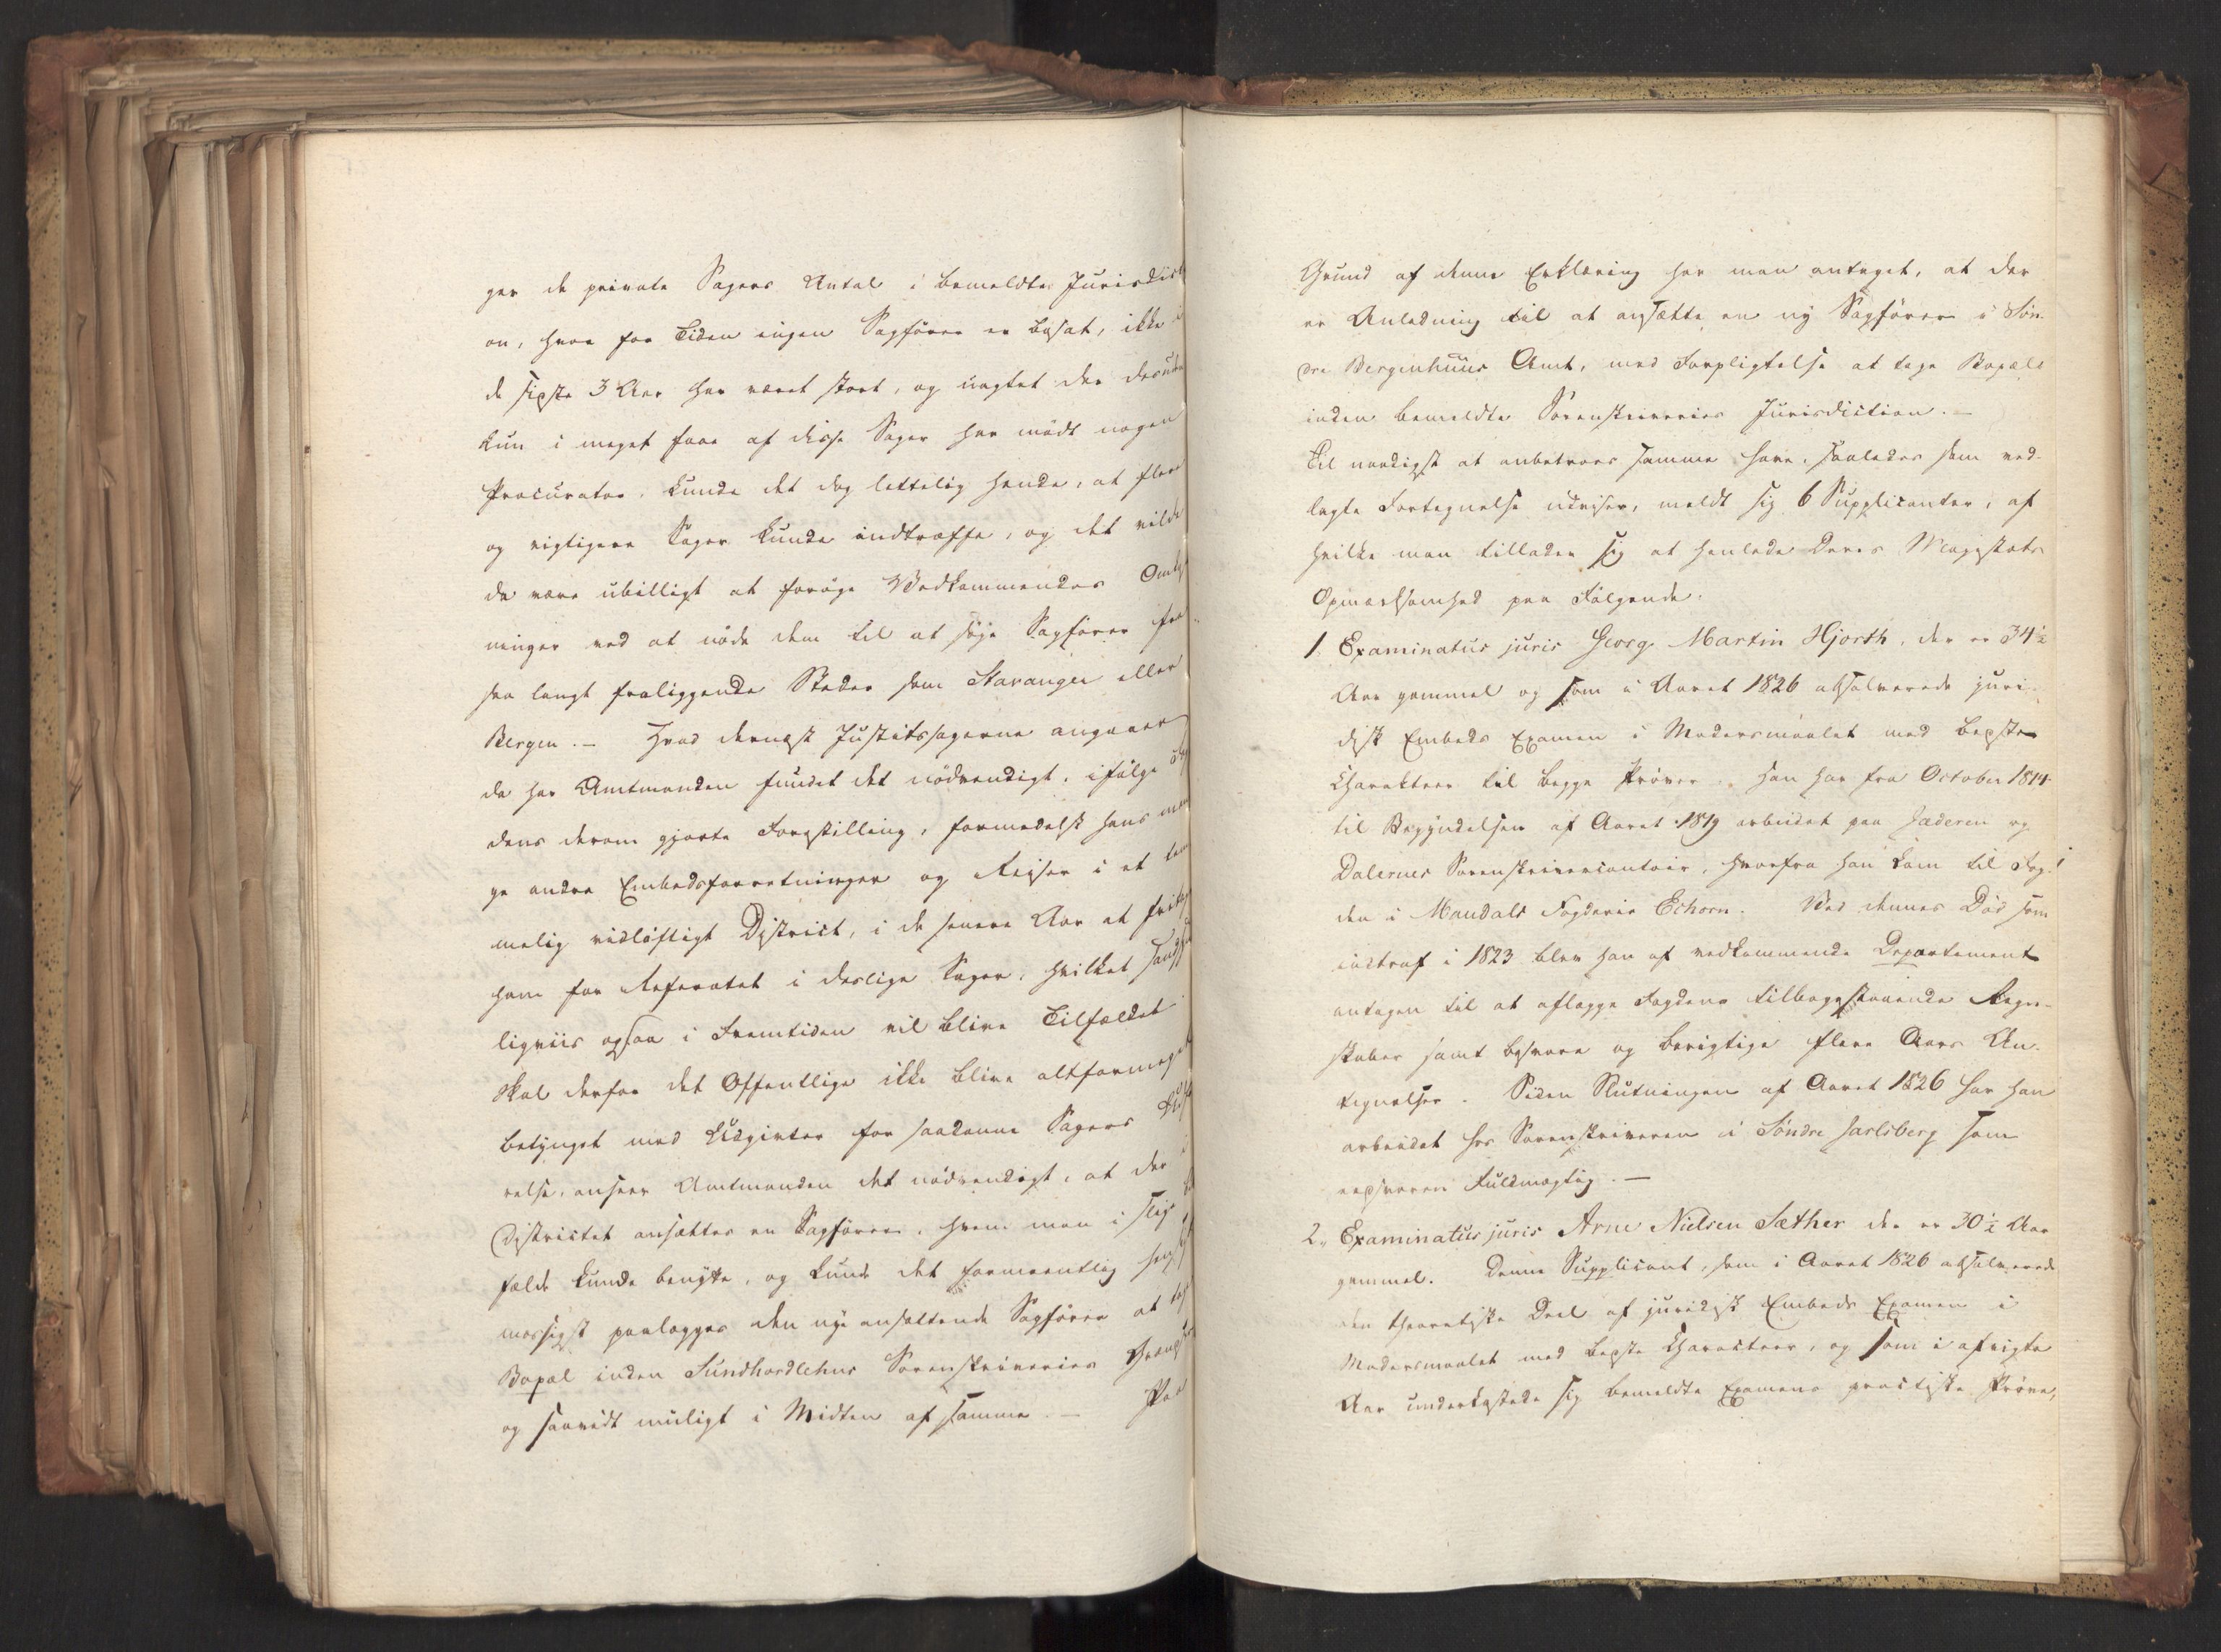 ger de private Sagers Antal i bemeldte Jurisdicti
on, hvor for Tiden ingen Sagfører er bosat, ikke i
de sidste 3 Aar har været stort, og uagtet der desuden
kun i meget faae af disse Sager har mødt nogen
Procurator, kunde det dog lettelig hende, at flere
og vigtigere Sager kunde indtræffe, og det vilde
da være ubilligt at forøge Vedkommendes Omkost
ninger ved at nøde dem til at søge Sagfører fra
saa langt fraliggende Steder som Stavanger eller
Bergen. – Hvad dernæst Justitssagerne angaaer
da har Amtmanden fundet det nødvendigt, ifølge
dens derom gjorte Forestilling, formedelst hans man
ge andre Embedsforretninger og Reiser i et tem
melig vidløftigt District, i de senere Aar at fritage
ham for Referatet i deslige Sager, hvilket sand
ligviis ogsaa i Fremtiden vil blive Tilfældet.
Skal derfor det Offentlige ikke blive altformeget
betynget med Udgivter for saadanne Sagers Ud
relse, anseer Amtmanden det nødvendigt, at der i
Districtet ansættes en Sagfører, hvem man i slige
fælde kunde benytte, og kunde det formeentlig hensigts
mæssigst paalægges den nye ansættende Sagfører at tage
Bopæl inden Sundhordlehns Sorenskriveries Grændser
og saavidt muligt i Midten af samme. – Paa
Grund af denne Erklæring har man antaget, at der
er Anledning til at ansætte en ny Sagfører i Søn
dre Bergenhuus Amt, med Forpligtelse at tage Bopæl
inden bemeldte Sorenskriveries Jurisdiction. –
Til naadigst at anbetroes samme have, saaledes som ved-
lagte Fortegnelse udviser, meldt sig 6 Supplicanter, af
hvilke man tillader sig at henlede Deres Majestæts
Opmærksomhed paa Følgende.
1 Examinatus juris Georg Martin Hjorth, der er 34½
Aar gammel og som i Aaret 1826 absolverede juri-
disk Embeds Examen i Modersmaalet med bedste
Charakteer til begge Prøver. Han har fra October 1814
til Begyndelsen af Aaret 1819 arbeidet paa Jæderen og
Dalernes Sorenskrivercontoir, hvorfra han kom til Fog-
den i Mandals Fogderie Eckorn. Ved dennes Død som
indtraf i 1823 blev han af vedkommende Departement
antagen til at aflægge Fogdens tilbagestaaende Regn-
skaber samt besvare og berigtige flere Aars An-
tegnelser. Siden Slutningen af Aaret 1826 har han
arbeidet hos Sorenskriveren i Søndre Jarlsberg som
eedsvoren Fuldmægtig. –
2., Examinatus juris Arne Nielsen Sæther der er 30½ Aar
gammel. Denne Supplicant, som i Aaret 1826 absolverede
den theoretiske Deel af juridisk Embeds Examen i
Modersmaalet med bedste Characteer, og som i afvigte
Aar underkastede sig bemeldte Examens practiske Prøve,